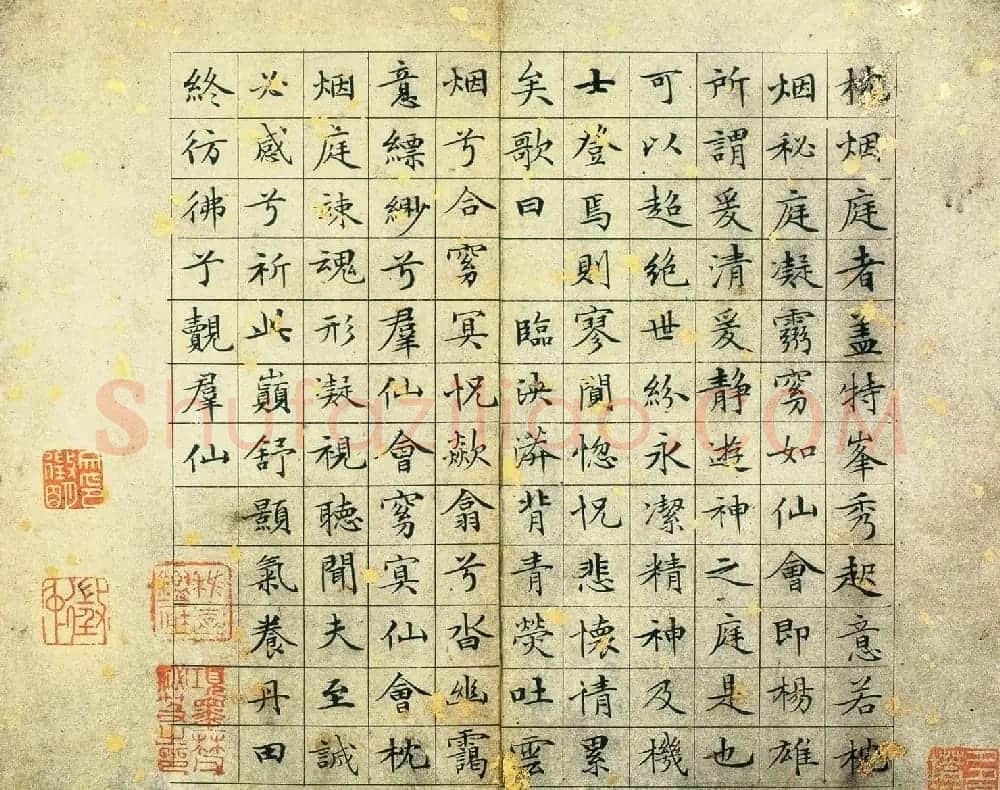 枕烟庭者盖特峯秀起意若枕
烟秘庭凝霛窈如仙會即楊雄
所謂爰清爰静遊神之庭是也
可以超絶世紛永潔精神及機
士登焉則寥閴惚怳悲懷情累
矣歌曰 臨泱漭背青熒吐雲
烟兮合窈冥怳欻翕兮沓幽靄
意縹緲兮羣仙會窈冥仙會枕
烟庭竦魂形凝視聽聞夫至誠
必感兮祈此巔舒顥氣養丹田
終彷彿兮覿羣仙
Shufaziliao.COM